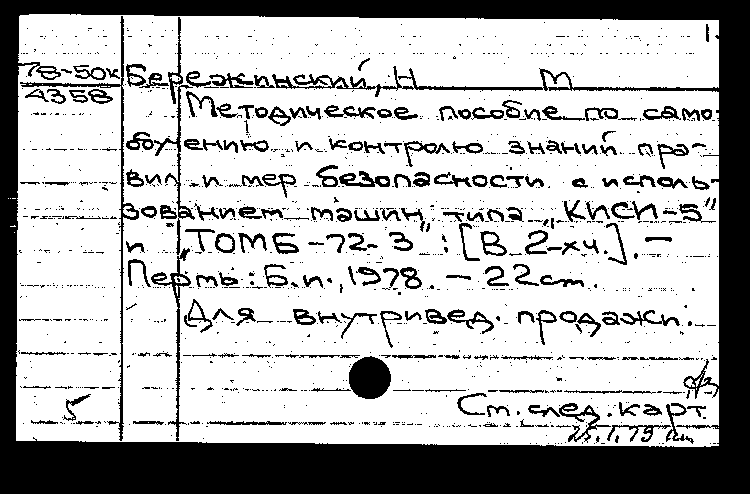 1.
78-50к
4358
Бережинский, Н М
Методическое пособие по само-
обучению и контролю знаний пра-
вил и мер безопасности с исполь-
зованием машин типа „КИСИ-5"
и „ТОМБ-72-3" : [В 2-х ч.]. —
Пермь : Б.и., 1978. — 22 см.
Для внутривед. продажи.
5
См. след. карт.
25.1.79